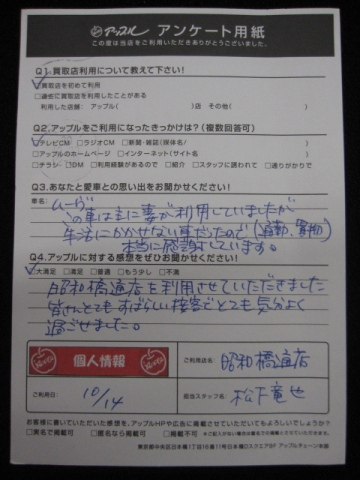 アップル アンケート用紙
この度は当店をご利用いただきありがとうございました。
Q1.買取店利用について教えて下さい!
買取店を初めて利用
□過去に買取店を利用したことがある
利用した店舗: アップル( )店 その他( )
Q2.アップルをご利用になったきっかけは?(複数回答可)
テレビCM □ラジオCM □新聞・雑誌(媒体名/ )
□アップルのホームページ □インターネット(サイト名 )
□チラシ □DM □利用経験があるので □紹介 □スタッフに誘われて □通りがかりで
Q3.あなたと愛車との思い出をお聞かせください!
車名: ムーヴ
この車は主に妻が利用していましたが
生活にかかせない車だったので(通勤、買物)
本当に感謝しています。
Q4.アップルに対する感想をぜひお聞かせください!
大満足 □満足 □普通 □もう少し □不満
昭和橋通店を利用させていただきました
皆さんとてもすばらしい接客でとても気分よく
過ごせました。
個人情報
ご利用店名: 昭和橋通店
ご利用日: 10/14
担当スタッフ名: 松下竜也
お客様に書いていただいた感想を、アップルHPや広告に掲載させていただいてもよろしいでしょうか?
□実名で掲載可 □匿名なら掲載可 □掲載不可
東京都中央区日本橋1丁目16番11号日本橋DスクエアBF アップルチェーン本部